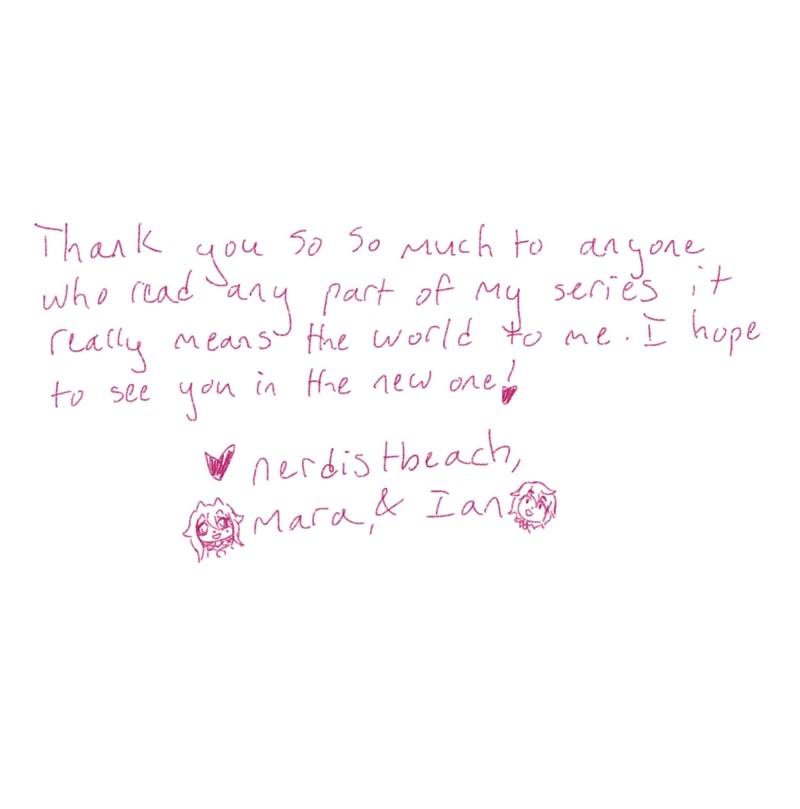 Thank you so so much to anyone
who read any part of my series it
really means the world to me. I hope
to see you in the new one!
nerdistbeach,
Mara, & Ian